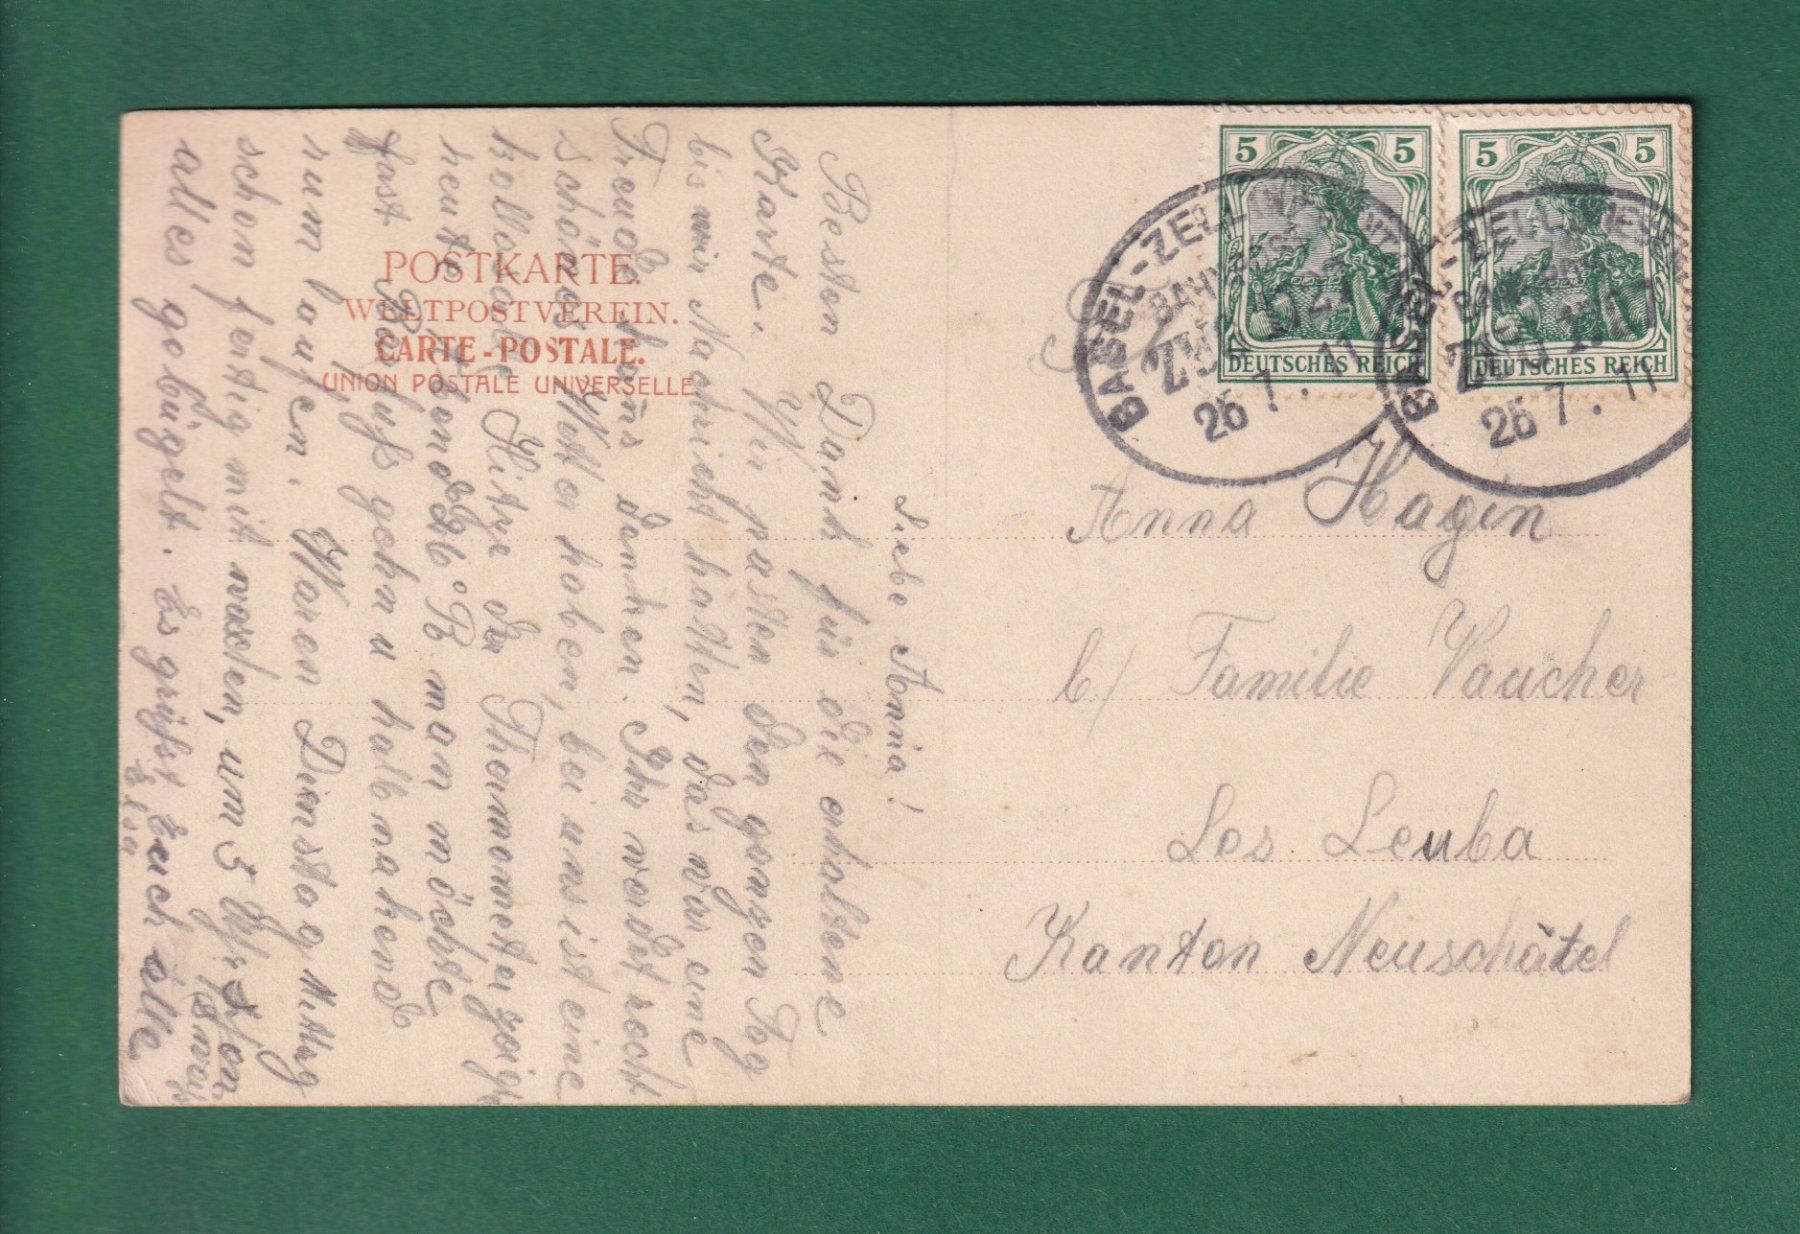 POSTKARTE.
WELTPOSTVEREIN.
CARTE-POSTALE.
UNION POSTALE UNIVERSELLE.
5 5
DEUTSCHES REICH
5 5
DEUTSCHES REICH
BASEL-ZELL
BAHNPOST
ZUG
26 7. 11
BASEL-ZELL
ZUG
26 7. 11
Anna Hagin
b/ Familie Vaucher
Les Leuba
Kanton Neuschâtel
Liebe Anna!
Besten Dank für die erhaltene
Karte. Wir passten den ganzen Tag
bis wir Nachricht hatten, das war eine
Freude, koms denken. Ihr werdet recht
schönes Wetter haben, bei uns ist eine
kollosale Hitze der Thermometer zeigt
heute Abend man möchte
fast Barfuss gehn u halbnakend
rum laufen. Waren Dienstag Mittag
schon fertig mit waschen, um 5 Uhr schon
alles gebügelt. Es grüsst Euch alle
Elsa